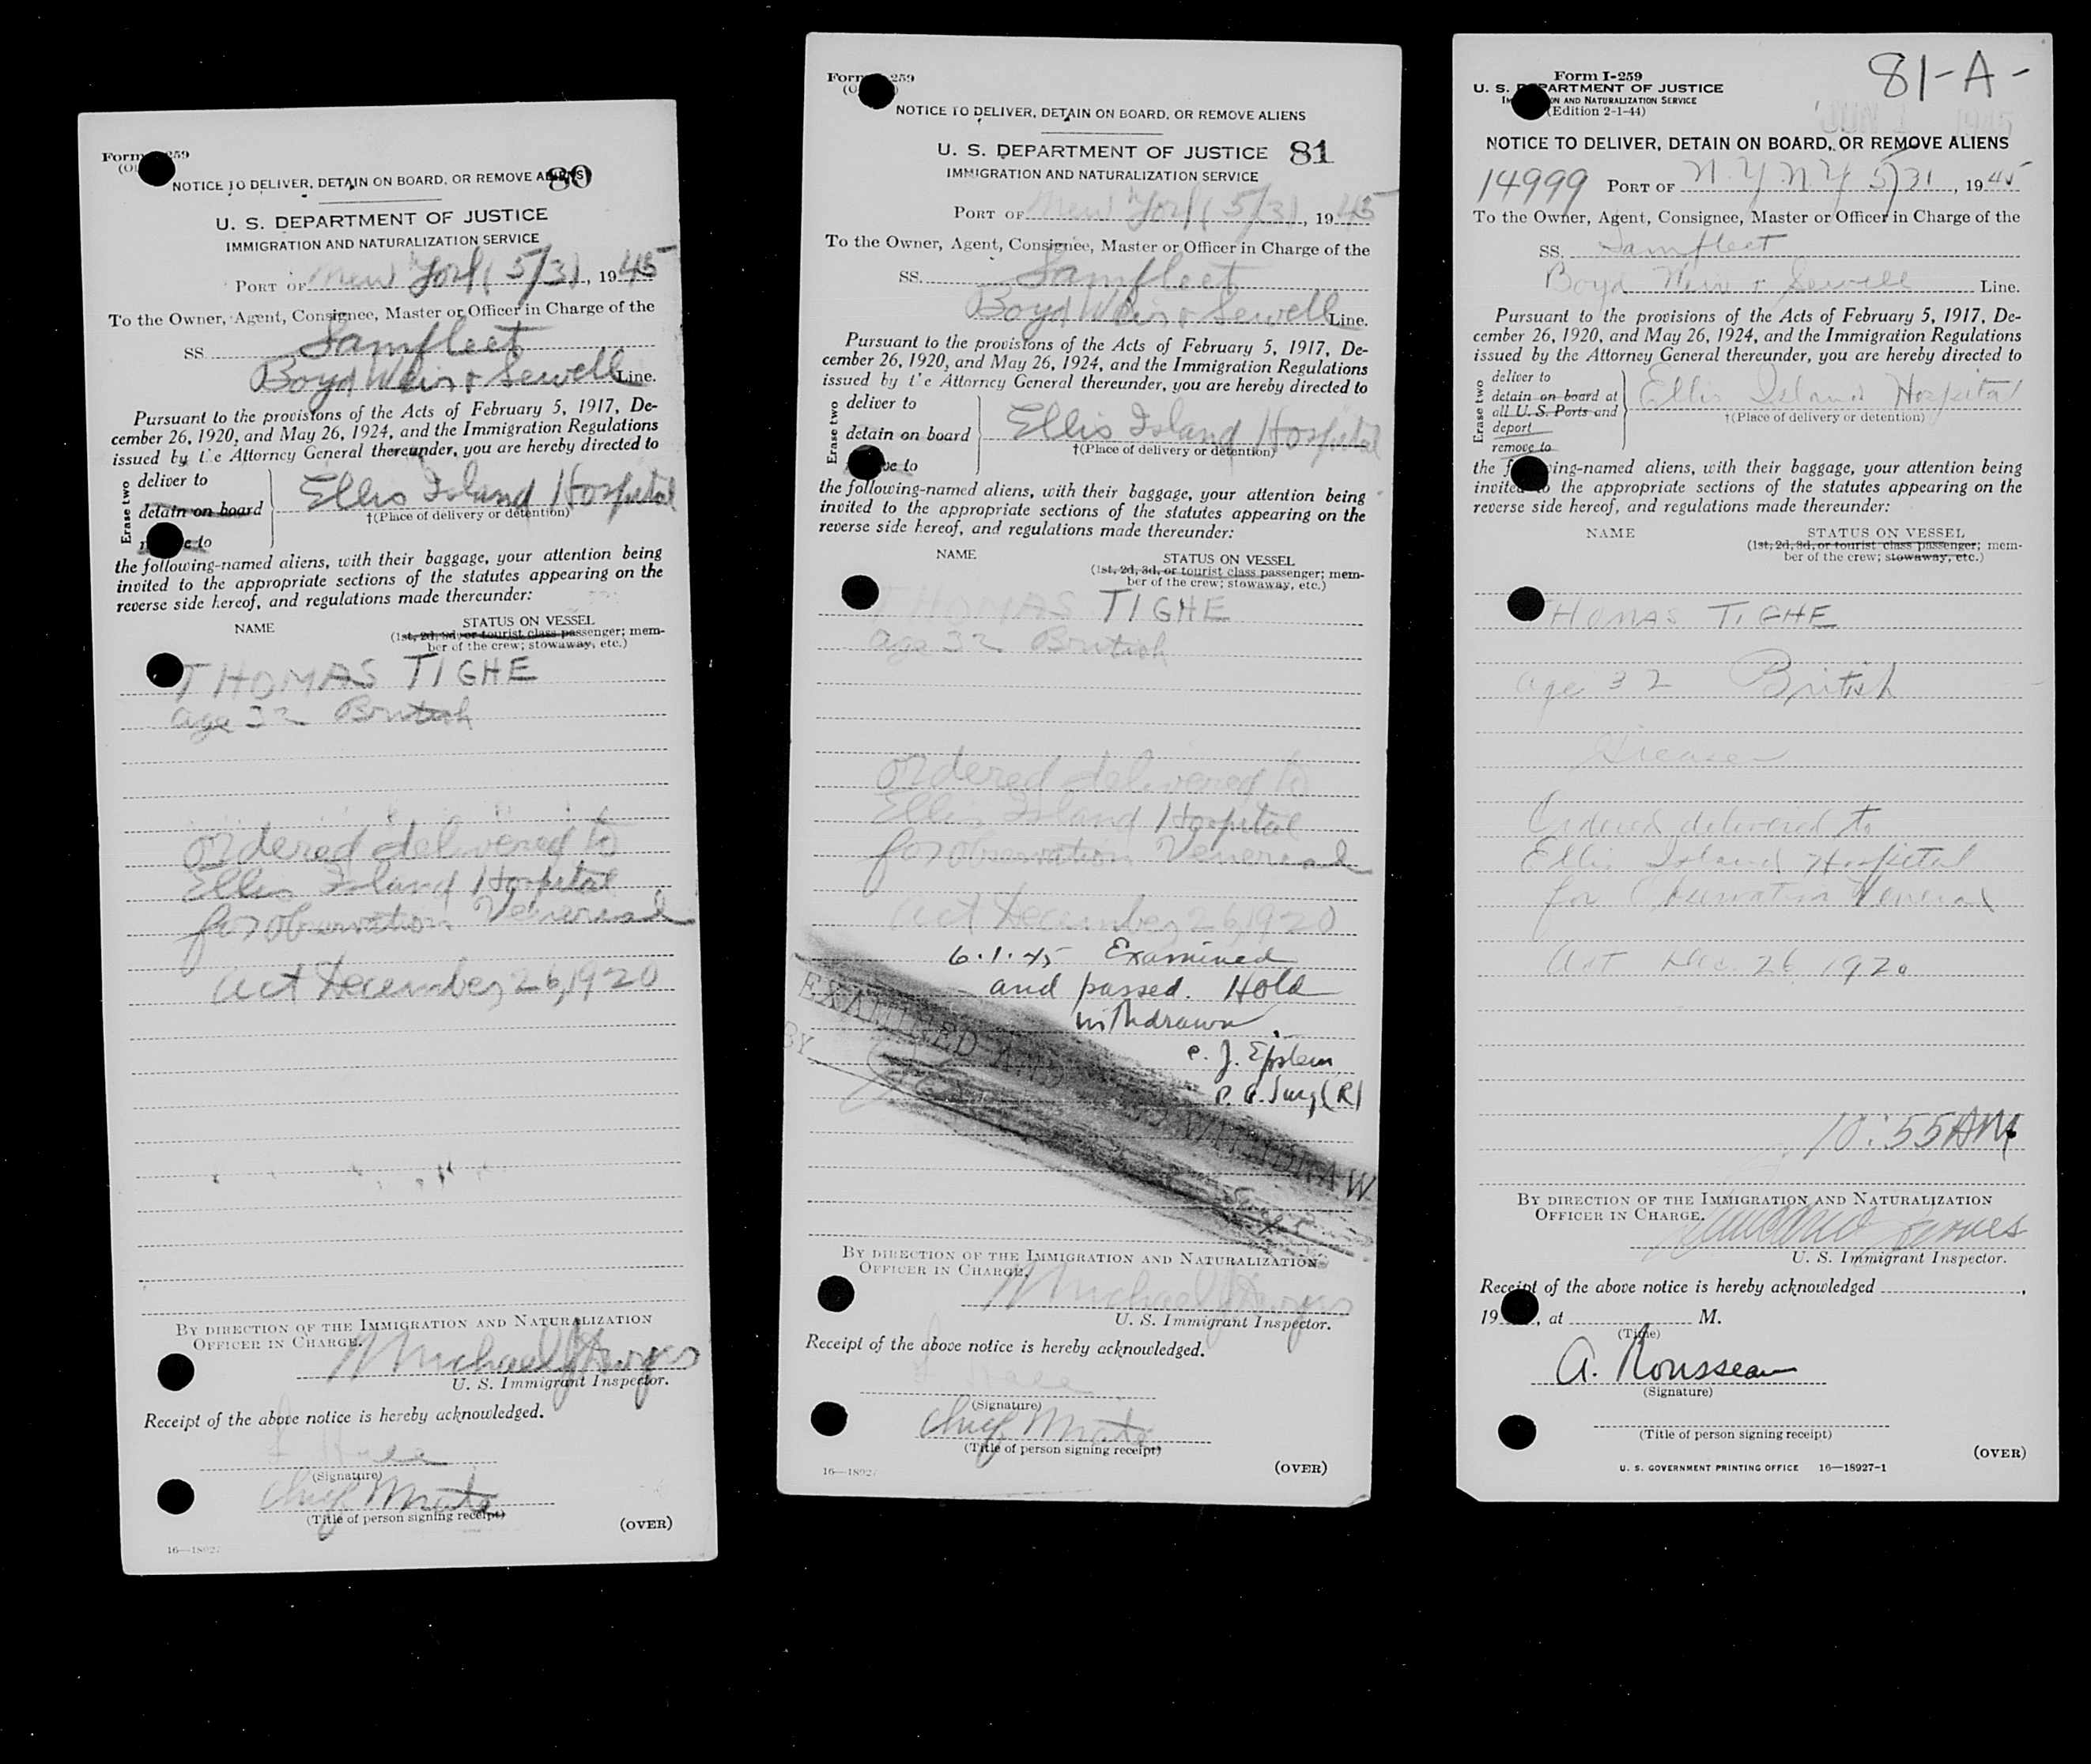 Form 259
80
NOTICE TO DELIVER, DETAIN ON BOARD, OR REMOVE ALIENS
U. S. DEPARTMENT OF JUSTICE
IMMIGRATION AND NATURALIZATION SERVICE
PORT OF New York 5/31, 1945
To the Owner, Agent, Consignee, Master or Officer in Charge of the
SS. Samfleet
Boyd Weir & Sewell Line.
Pursuant to the provisions of the Acts of February 5, 1917, De-
cember 26, 1920, and May 26, 1924, and the Immigration Regulations
issued by the Attorney General thereunder, you are hereby directed to
Erase two
deliver to
detain on board
to
Ellis Island Hospital
†(Place of delivery or detention)
the following-named aliens, with their baggage, your attention being
invited to the appropriate sections of the statutes appearing on the
reverse side hereof, and regulations made thereunder:
NAME STATUS ON VESSEL
(1st, 2d, 3d, or tourist class passenger; mem-
ber of the crew; stowaway, etc.)
THOMAS TIGHE
age 32 British
ordered delivered to
Ellis Island Hospital
for observation Venereal
act December 26, 1920
BY DIRECTION OF THE IMMIGRATION AND NATURALIZATION
OFFICER IN CHARGE.
Michael
U. S. Immigrant Inspector.
Receipt of the above notice is hereby acknowledged.
(Signature)
Chief Mate
(Title of person signing receipt)
(OVER)
16—18927
Form 259
NOTICE TO DELIVER, DETAIN ON BOARD, OR REMOVE ALIENS
U. S. DEPARTMENT OF JUSTICE 81
IMMIGRATION AND NATURALIZATION SERVICE
PORT OF New York 5/31, 1945
To the Owner, Agent, Consignee, Master or Officer in Charge of the
SS. Samfleet
Boyd Weir & Sewell Line.
Pursuant to the provisions of the Acts of February 5, 1917, De-
cember 26, 1920, and May 26, 1924, and the Immigration Regulations
issued by the Attorney General thereunder, you are hereby directed to
Erase two
deliver to
detain on board
to
Ellis Island Hospital
†(Place of delivery or detention)
the following-named aliens, with their baggage, your attention being
invited to the appropriate sections of the statutes appearing on the
reverse side hereof, and regulations made thereunder:
NAME STATUS ON VESSEL
(1st, 2d, 3d, or tourist class passenger; mem-
ber of the crew; stowaway, etc.)
THOMAS TIGHE
age 32 British
ordered delivered to
Ellis Island Hospital
for observation Venereal
act December 26, 1920
6.1.45 Examined
and passed. Hold
withdrawn.
E. J. Epstein
P. A. Surg (R)
EXAMINED AND WITHDRAW
BY
BY DIRECTION OF THE IMMIGRATION AND NATURALIZATION
OFFICER IN CHARGE.
Michael
U. S. Immigrant Inspector.
Receipt of the above notice is hereby acknowledged.
(Signature)
Chief Mate
(Title of person signing receipt)
16—18927
(OVER)
81-A-
Form I-259
U. S. DEPARTMENT OF JUSTICE
IMMIGRATION AND NATURALIZATION SERVICE
(Edition 2-1-44)
JUN 1 1945
NOTICE TO DELIVER, DETAIN ON BOARD, OR REMOVE ALIENS
14999 PORT OF N.Y. N.Y. 5/31, 1945
To the Owner, Agent, Consignee, Master or Officer in Charge of the
SS. Samfleet
Boyd Weir & Sewell Line.
Pursuant to the provisions of the Acts of February 5, 1917, De-
cember 26, 1920, and May 26, 1924, and the Immigration Regulations
issued by the Attorney General thereunder, you are hereby directed to
Erase two
deliver to
detain on board at
all U. S. Ports and
deport
remove to
Ellis Island Hospital
†(Place of delivery or detention)
the following-named aliens, with their baggage, your attention being
invited to the appropriate sections of the statutes appearing on the
reverse side hereof, and regulations made thereunder:
NAME STATUS ON VESSEL
(1st, 2d, 3d, or tourist class passenger; mem-
ber of the crew; stowaway, etc.)
THOMAS TIGHE
age 32 British
Greaser
Ordered delivered to
Ellis Island Hospital
for Observation Venereal
Act Dec 26 1920
10:55 AM
BY DIRECTION OF THE IMMIGRATION AND NATURALIZATION
OFFICER IN CHARGE.
U. S. Immigrant Inspector.
Receipt of the above notice is hereby acknowledged
19 , at M.
(Time)
A. Rousseau
(Signature)
(Title of person signing receipt)
(OVER)
U. S. GOVERNMENT PRINTING OFFICE 16—18927-1